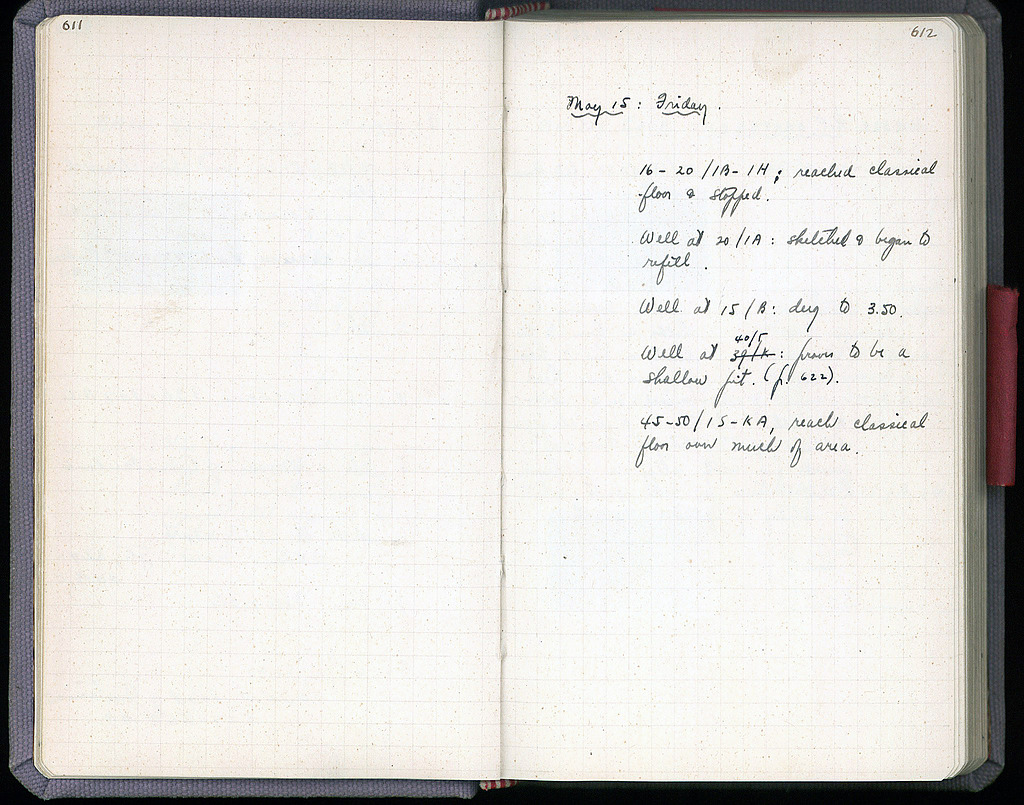 611
612
May 15: Friday.
16-20/1B-1H; reached classical
floor & stopped.
Well at 20/1A: sketched & began to
refill.
Well at 15/B: dug to 3.50.
40/5
Well at 39/K: proves to be a
shallow pit. (p. 622).
45-50/15-KA, reach classical
floor over much of area.